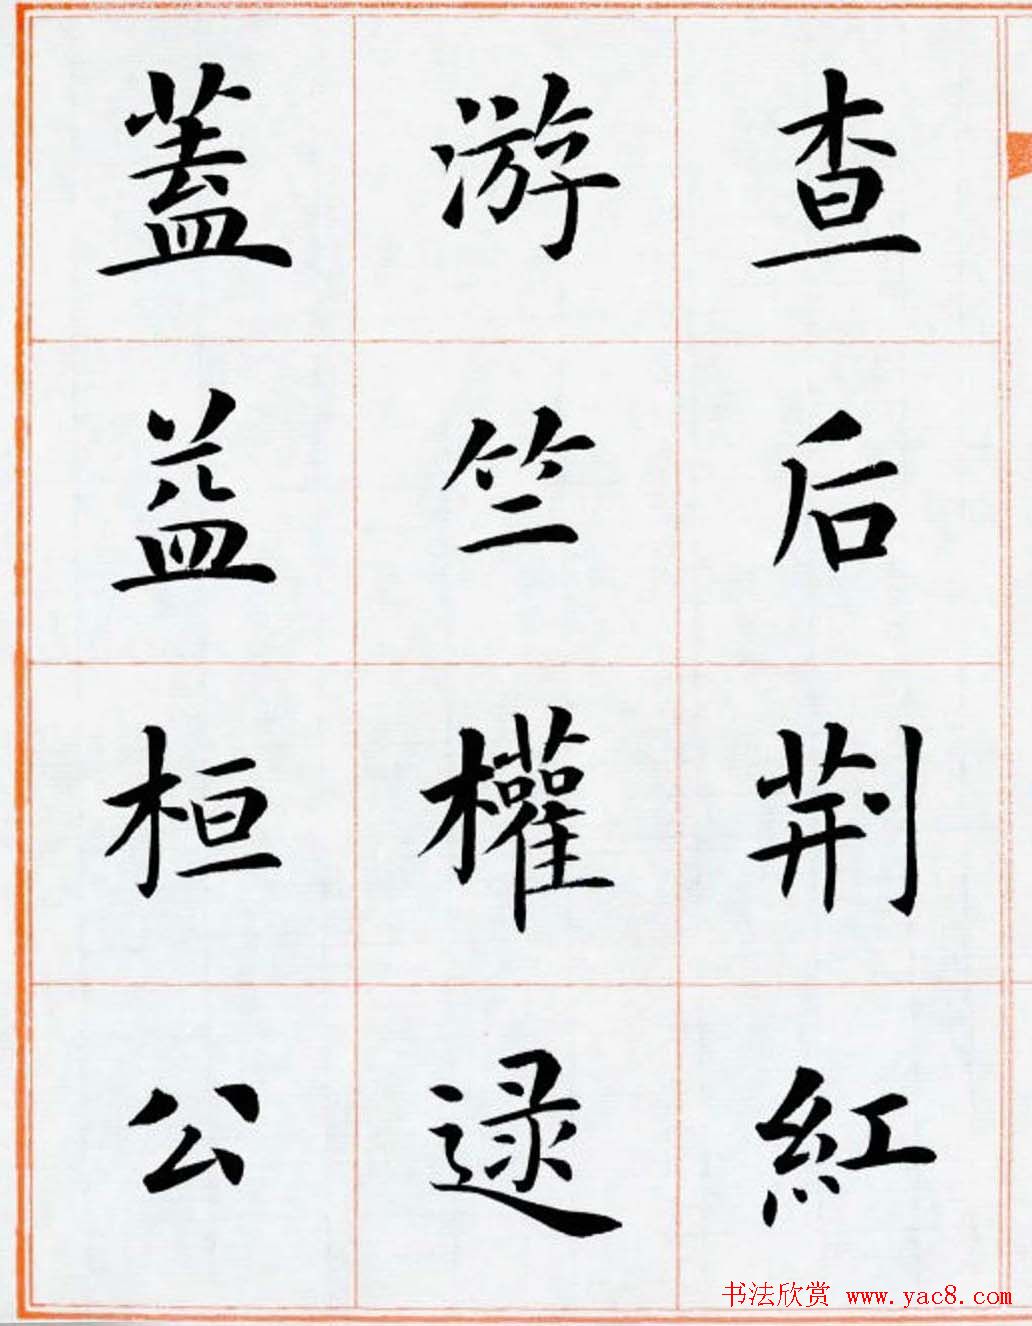 查后荆紅
游竺權逯
蓋益桓公
书法欣赏 www.yac8.com